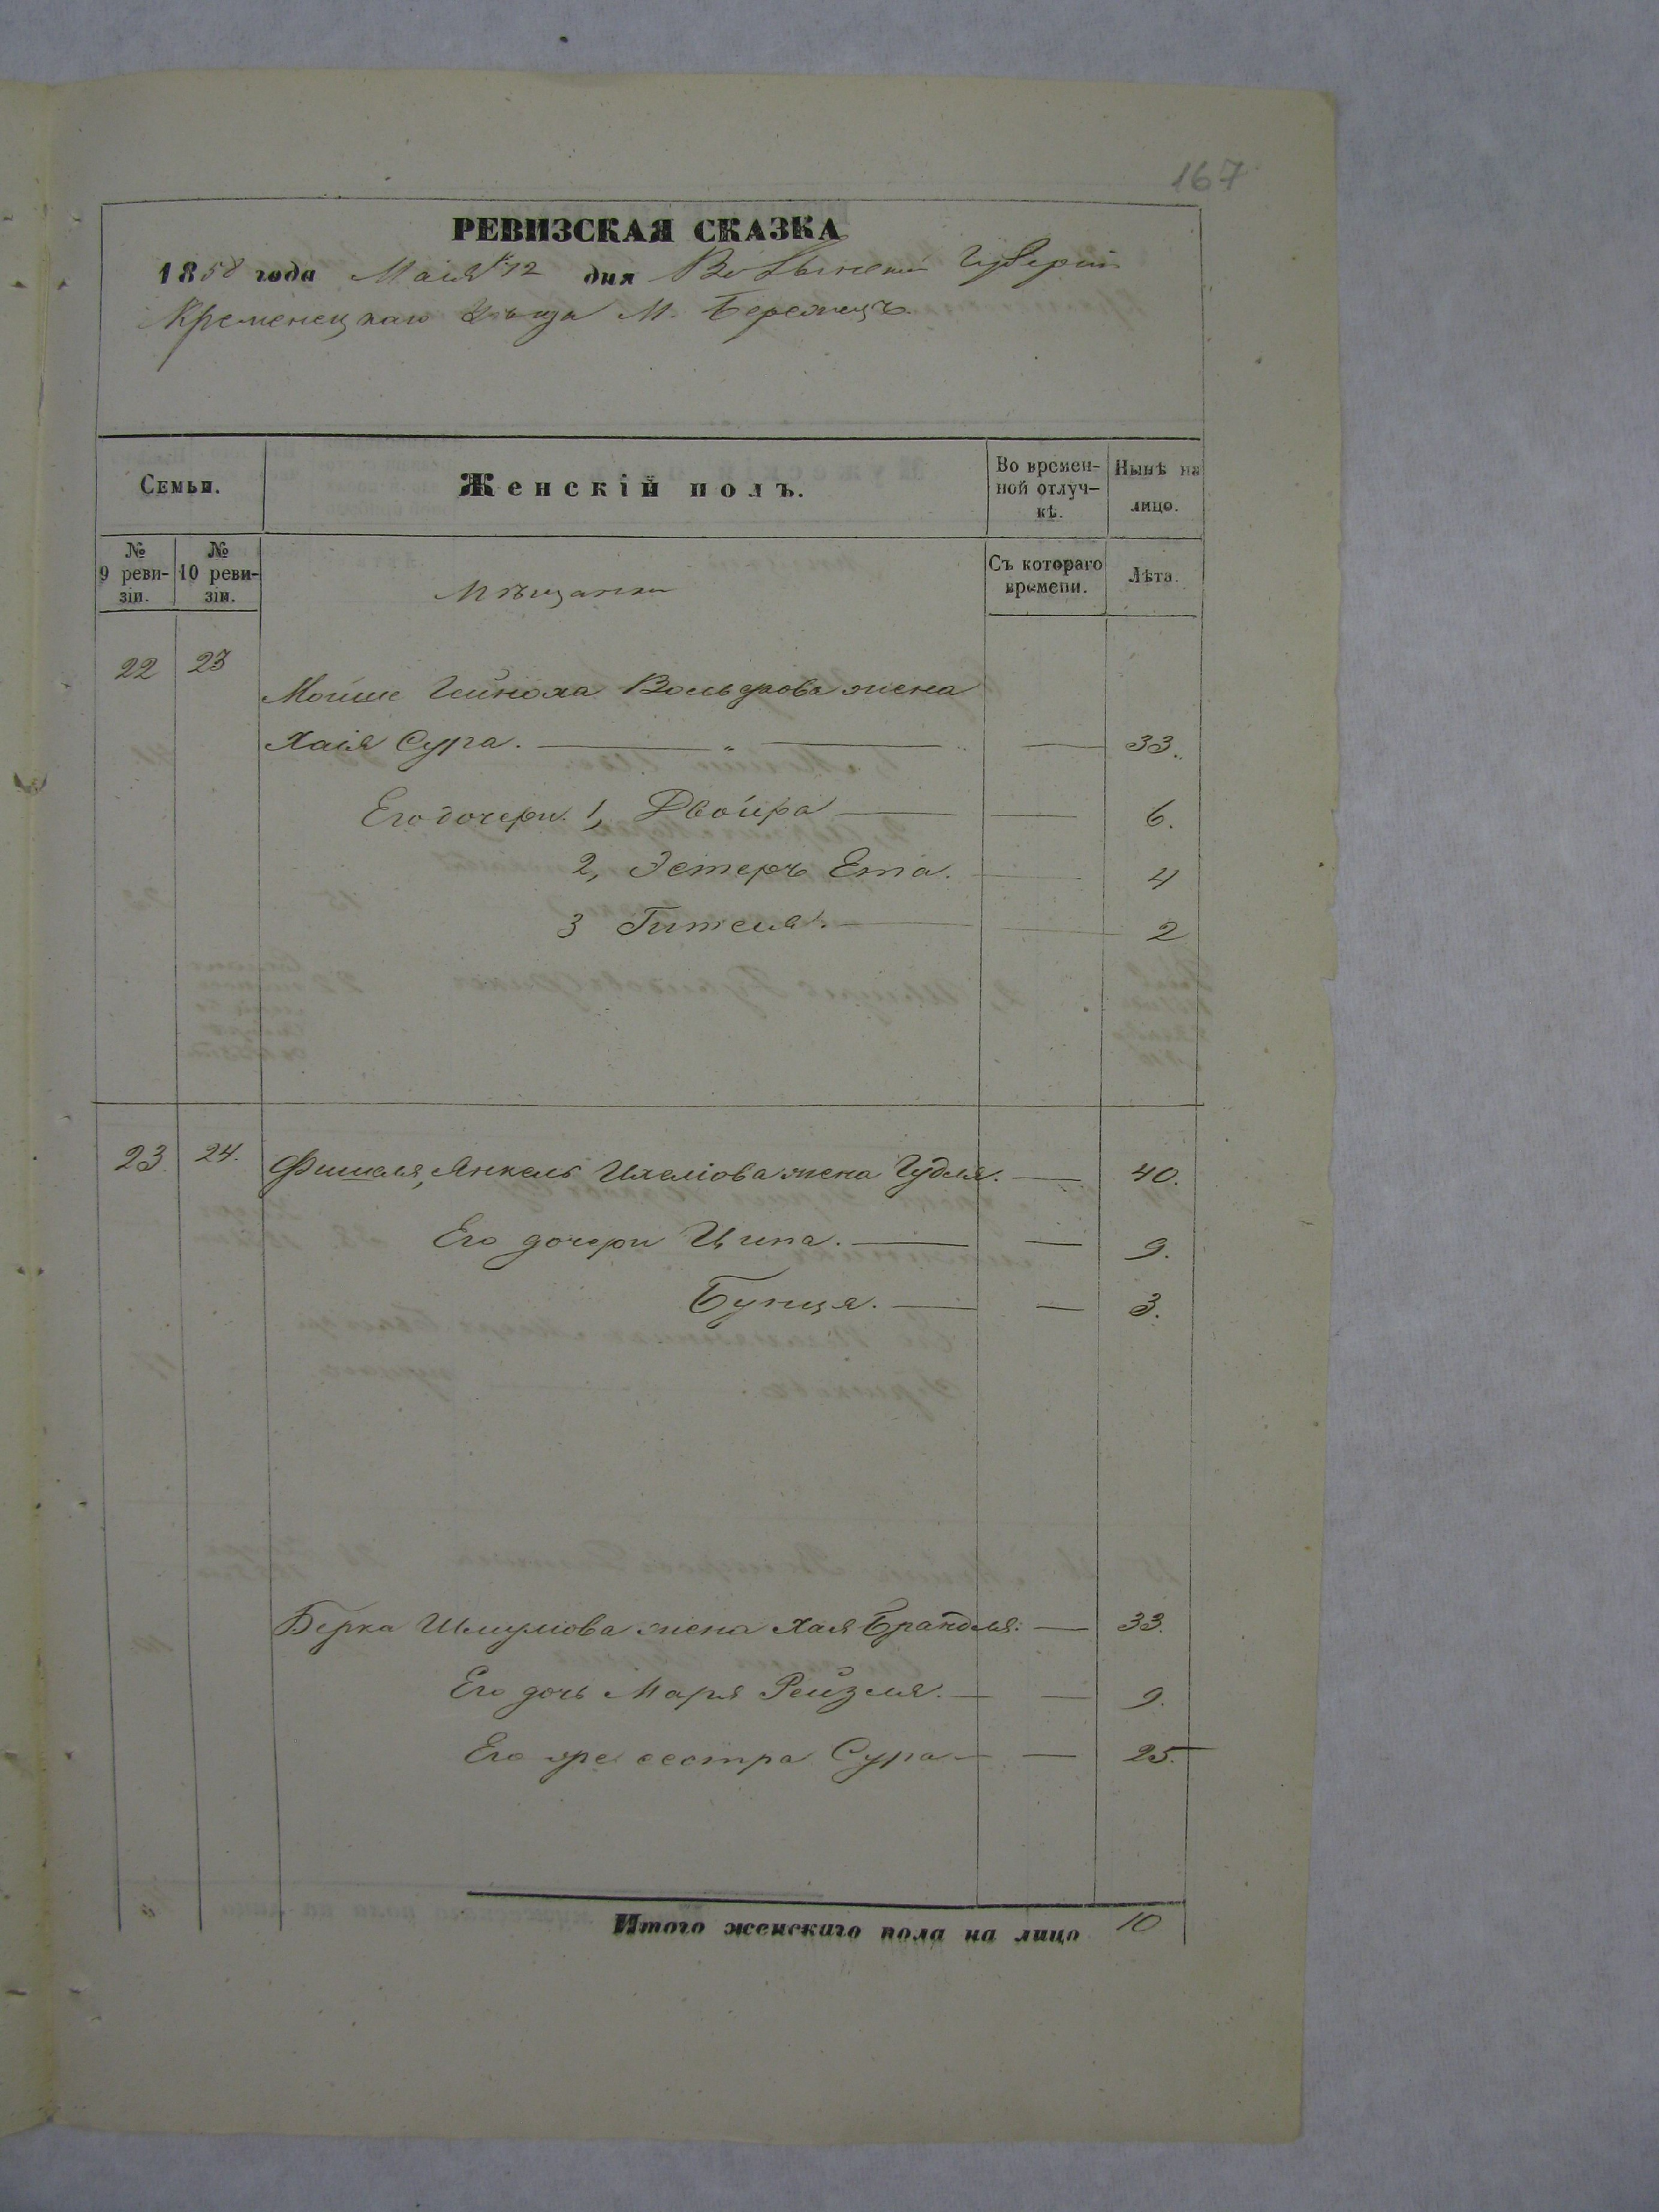 167
РЕВИЗСКАЯ СКАЗКА
1858 года Маія 12 дня Волынской Губерніи
Кременецкаго Уѣзда М. Бережецъ.
Семьи.
Женскій полъ.
Во времен-
ной отлуч-
кѣ.
Нынѣ на
лицо.
№
9 реви-
зіи.
№
10 реви-
зіи.
Мѣщанки
Съ котораго
времени.
Лѣта.
22 23
Мошие Гейноха жена
Хаія Сура. — „ — — 33.
Его дочери. 1, Двойра — — 6.
2, Эстеръ Ета. — 4
3 Гителя. — — 2
23. 24. Фишеля, Янкель жена Гудля. — 40.
Его дочери Ципа. — — 9.
Бунця. — — 3.
Берка Шмулiова жена Хая Брандля. — 33.
Его дочь Маря Рейзля. — — 9.
Его сестра Сура — — 25.
Итого женскаго пола на лицо 10